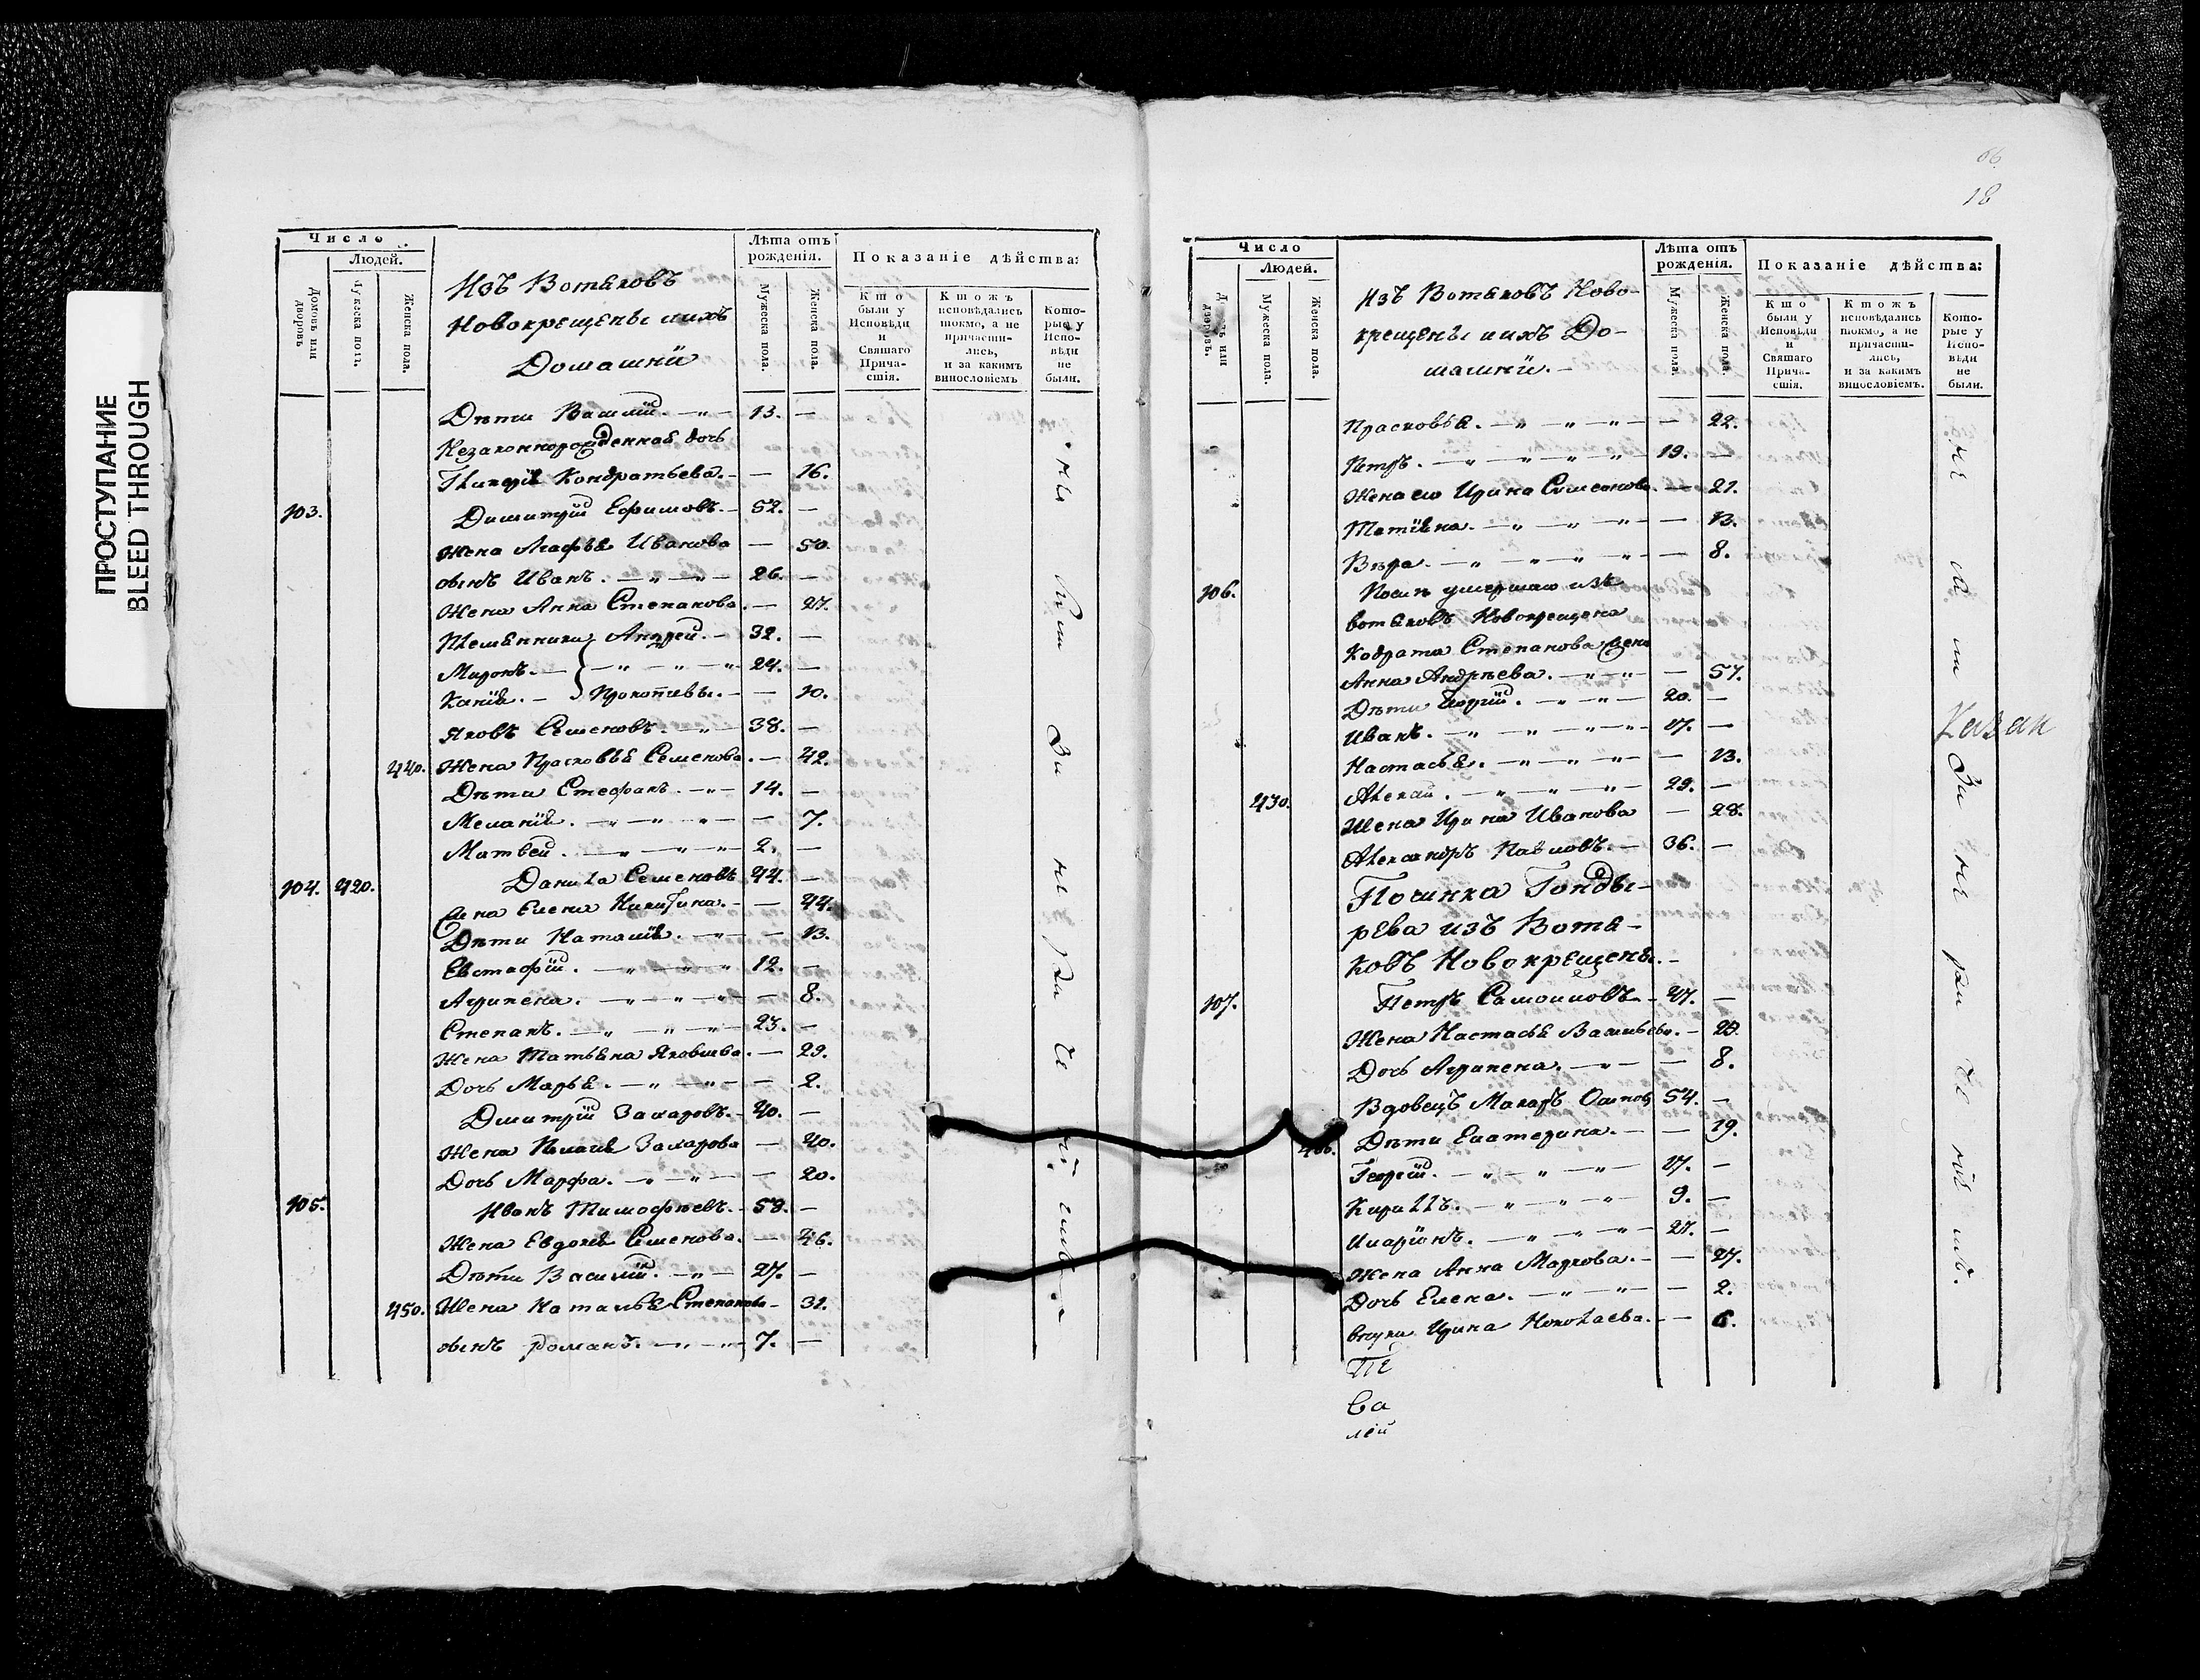 ПРОСТУПАНИЕ
BLEED THROUGH
Число
Людей.
Домовъ или дворовъ
Мужеска полъ.
Женска пола.
Изъ Вотяковъ
Новокрещены иихъ
Домашнїи
Лѣта отъ рожденія.
Мужеска пола.
Женска пола.
Показаніе дѣйства:
Кто были у Исповѣди и Святаго Причастія.
Ктожъ исповѣдались токмо, а не причастились, и за какимъ винословіемъ
Которые у Исповѣди не были.
Дѣти Василїй. 13. —
Незаконнорожденная дочь
Гликерїя Кондратьева. — 16.
103. Димитрїй Ефимовъ. 52. —
Жена Агафья Иванова — 50.
сынъ Иванъ. 26. —
Жена Анна Степанова. — 27.
Племянники Андрей. 32. —
Миронъ. 24. —
Прокопїевы. — 10.
Яковъ Семеновъ. 38. —
440. Жена Прасковья Семенова. — 42.
Дѣти Стефанъ. 14. —
Меланїя. — 7.
Матвей. 2. —
104. 420. Данила Семеновъ 44. —
Жена Елена Никитина. — 44.
Дѣти Наталїя. — 13.
Евстафїй. 12. —
Агрипена. — 8.
Степанъ. 23. —
Жена Татьяна Яковлева. — 29.
Дочь Марья. — 2.
Дмитрїй Захаровъ. 40. —
Жена Захарова — 40.
Дочь Марфа. — 20.
105. Иванъ Тимофѣевъ. 58. —
Жена Евдокїя Семенова. — 46.
Дѣти Василїй. 27. —
450. Жена Наталья Степанова — 31.
сынъ романъ. 7. —
66
18
Число
Людей.
дворовъ.
Мужеска пола.
Женска пола.
Изъ Вотяковъ Ново-
крещены иихъ До-
машнїи. –
Лѣта отъ рожденія.
Мужеска пола.
Женска пола.
Показаніе дѣйства:
Кто были у Исповѣди и Святаго Причастія.
Ктожъ исповѣдались токмо, а не причастились, и за какимъ винословіемъ.
Которые у Исповѣди не были.
Прасковья. — 22.
Петръ. 19. —
Жена ево Ирина Симеонова. — 21.
Татїяна. — 13.
Вѣра. — 8.
106. Послѣ умершаго изъ
вотяковъ Новокрещена
Кодрата Степанова жена
Анна Андрѣева. — 57.
Дѣти 20. —
Иванъ. 17. —
Настасья. — 13.
430. Алексѣй. 29. —
Жена Ирина Иванова — 28.
Александръ Павловъ. 36. —
Починка Гонды-
рева изъ Вотя-
ковъ Новокрещены. –
107. Петръ Самоиловъ. 27. —
Жена Настасья Васильева. — 25.
Дочь Агрипена. — 8.
Вдовецъ Макаръ Осиповъ 54. —
Дѣти Екатерина. — 19.
Георгїй. 17. —
Кириллъ. 9. —
Иларїонъ. 27. —
Жена Анна Маркова. — 27.
Дочь Елена. — 2.
внука Ирина Николаева. — 6.
Казан